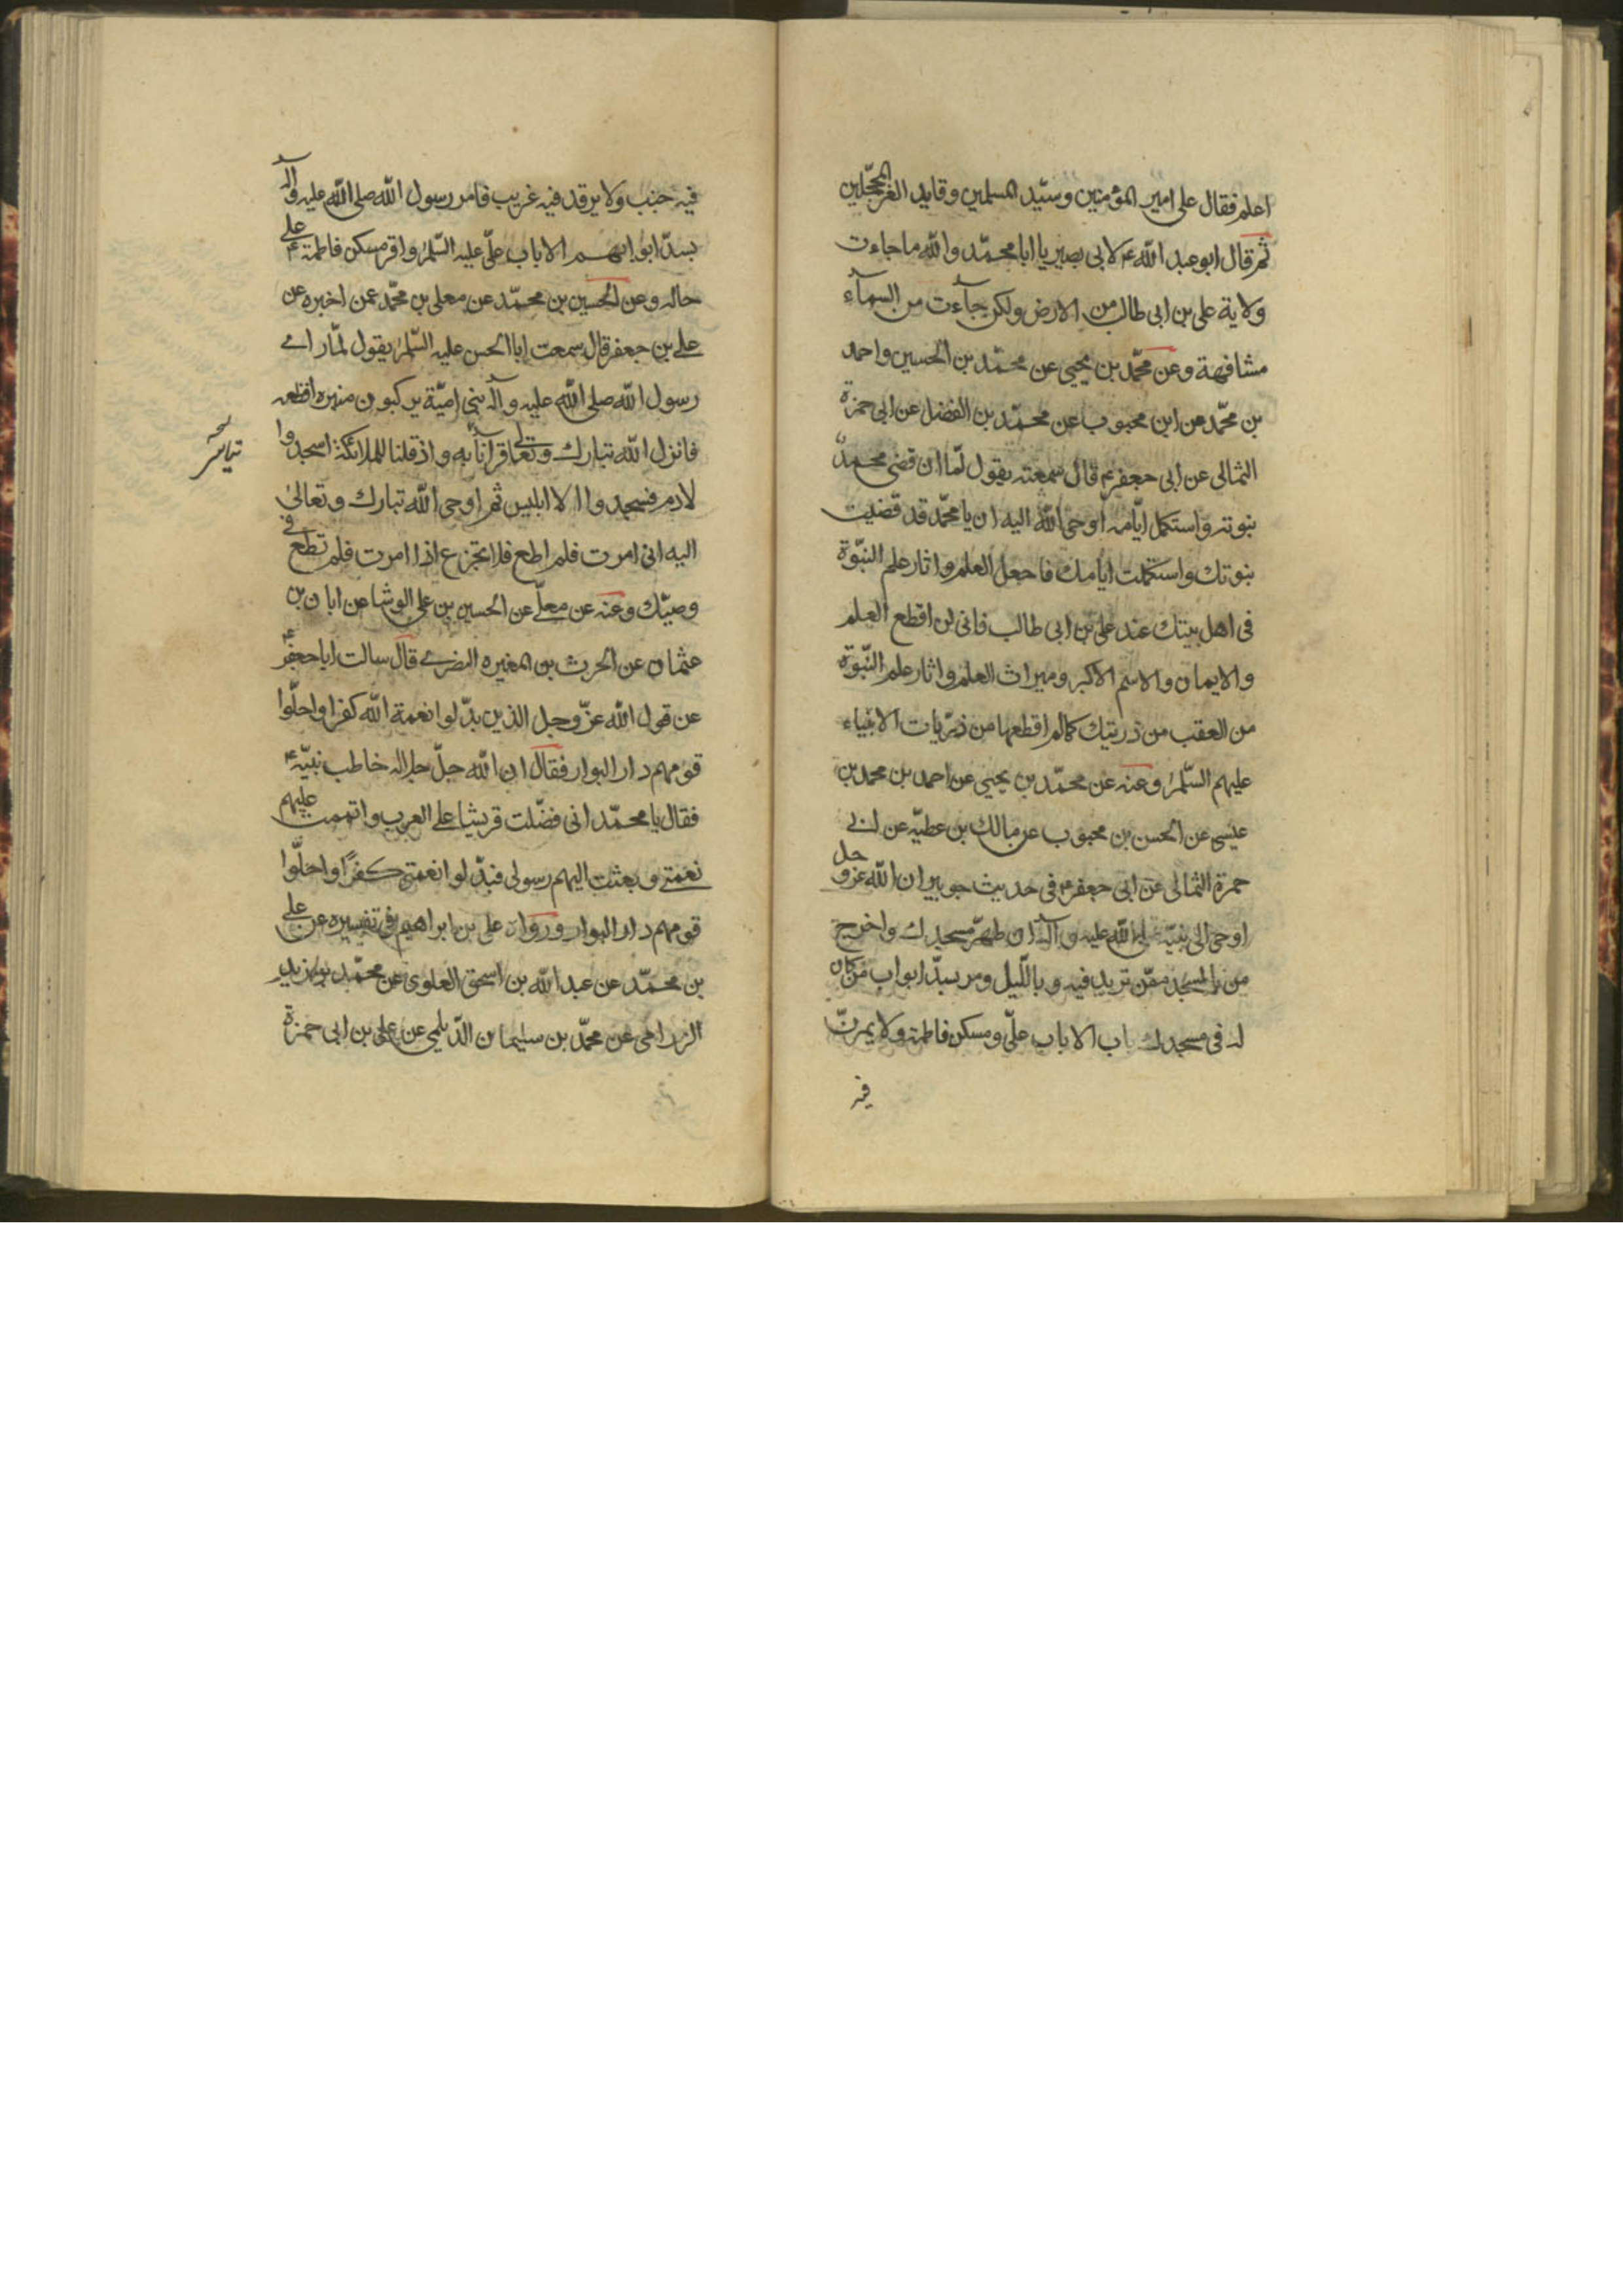 اعلم فقال على امير المؤمنين وسيّد المسلمين وقايد الغر المحجّلين
ثم قال ابو عبد الله ع لابى بصير يا ابا محمّد والله ما جاءت
ولاية على بن ابى طالب من الارض ولكن جآءت من السمآء
مشافهة وعن محمّد بن يحيى عن محمّد بن الحسين واحمد
بن محمّد عن ابن محبوب عن محمّد بن الفضل عن ابى حمزة
الثمالى عن ابى جعفر ع قال سمعته يقول لمّا ان قضى محمد
نبوته واستكمل ايّامه اوحى الله اليه ان يا محمّد قد قضيت
نبوتك واستكملت ايامك فاجعل العلم واثار علم النبّوة
فى اهل بيتك عند على بن ابى طالب فانى لن اقطع العلم
والايمان والاسم الاكبر وميراث العلم واثار علم النّبوّة
من العقب من ذريتك كما لم اقطعها من ذرّيات الانبياء
عليهم السّلم وعنه عن محمّد بن يحيى عن احمد بن محمد بن
عيسى عن الحسن بن محبوب عن مالك بن عطيّه عن ابى
حمزة الثمالى عن ابى جعفر ع فى حديث جويبر ان الله عزو جل
اوحى الى نبيّه صلى الله عليه وآله ان طهّر مسجدك واخرج
من المسجد ممّن تريد فيه وبالّليل ومر بسدّ ابواب من كان
له فى مسجدك باب الا باب علّى ومسكن فاطمة ولا يمرنّ
فيه
فيه جنب ولا يرقد فيه غريب فامر رسول الله صلى الله عليه وآله
بسدّ ابوابهم الا باب علّى عليه السّلم واقر مسكن فاطمة ع على
حاله وعن الحسين بن محمّد عن معلى بن محمّد عمن اخبره عن
على بن جعفر قال سمعت ابا الحسن عليه السّلم يقول لمّا راى
رسول الله صلى الله عليه وآله بنى اميّة يركبون منبره افظعه
فانزل الله تبارك وتعالى قرآناً به واذ قلنا للملائكة اسجدوا
لادم فسجدوا الا ابليس ثم اوحى الله تبارك وتعالى
اليه انى امرت فلم اطع فلا تجزع اذا امرت فلم تطع فى
وصيّك وعنه عن معلّى عن الحسين بن على الوشا عن ابان بن
عثمان عن الحرث بن المغيره النضرى قال سالت ابا جعفر ع
عن قول الله عزّ وجل الذين بدّلوا نعمة الله كفرا واحلّوا
قومهم دار البوار فقال ان الله جلّ جلاله خاطب نبيّه ع
فقال يا محمّد انى فضّلت قريشا على العرب واتممت عليهم
نعمتى وبعثت اليهم رسولى فبدّلوا نعمتى كفرًا واحلّوا
قومهم دار البوار ورواه على بن ابراهيم فى تفسيره عن على
بن محمّد عن عبد الله بن اسحق العلوى عن محمّد بن زيد
الزرامى عن محمّد بن سليمان الدّيلمى عن على بن ابى حمزة